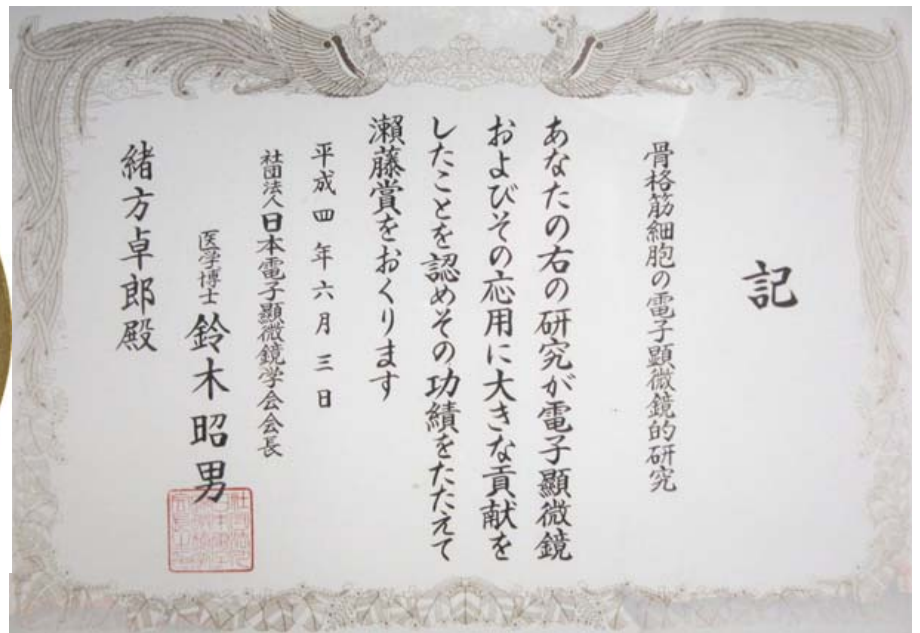 記
骨格筋細胞の電子顯微鏡的研究
あなたの右の研究が電子顯微鏡
およびその応用に大きな貢献を
したことを認めその功績をたたえて
瀬藤賞をおくります
平成四年六月三日
社団法人日本電子顯微鏡学会会長
医学博士 鈴木昭男
緒方卓郎殿